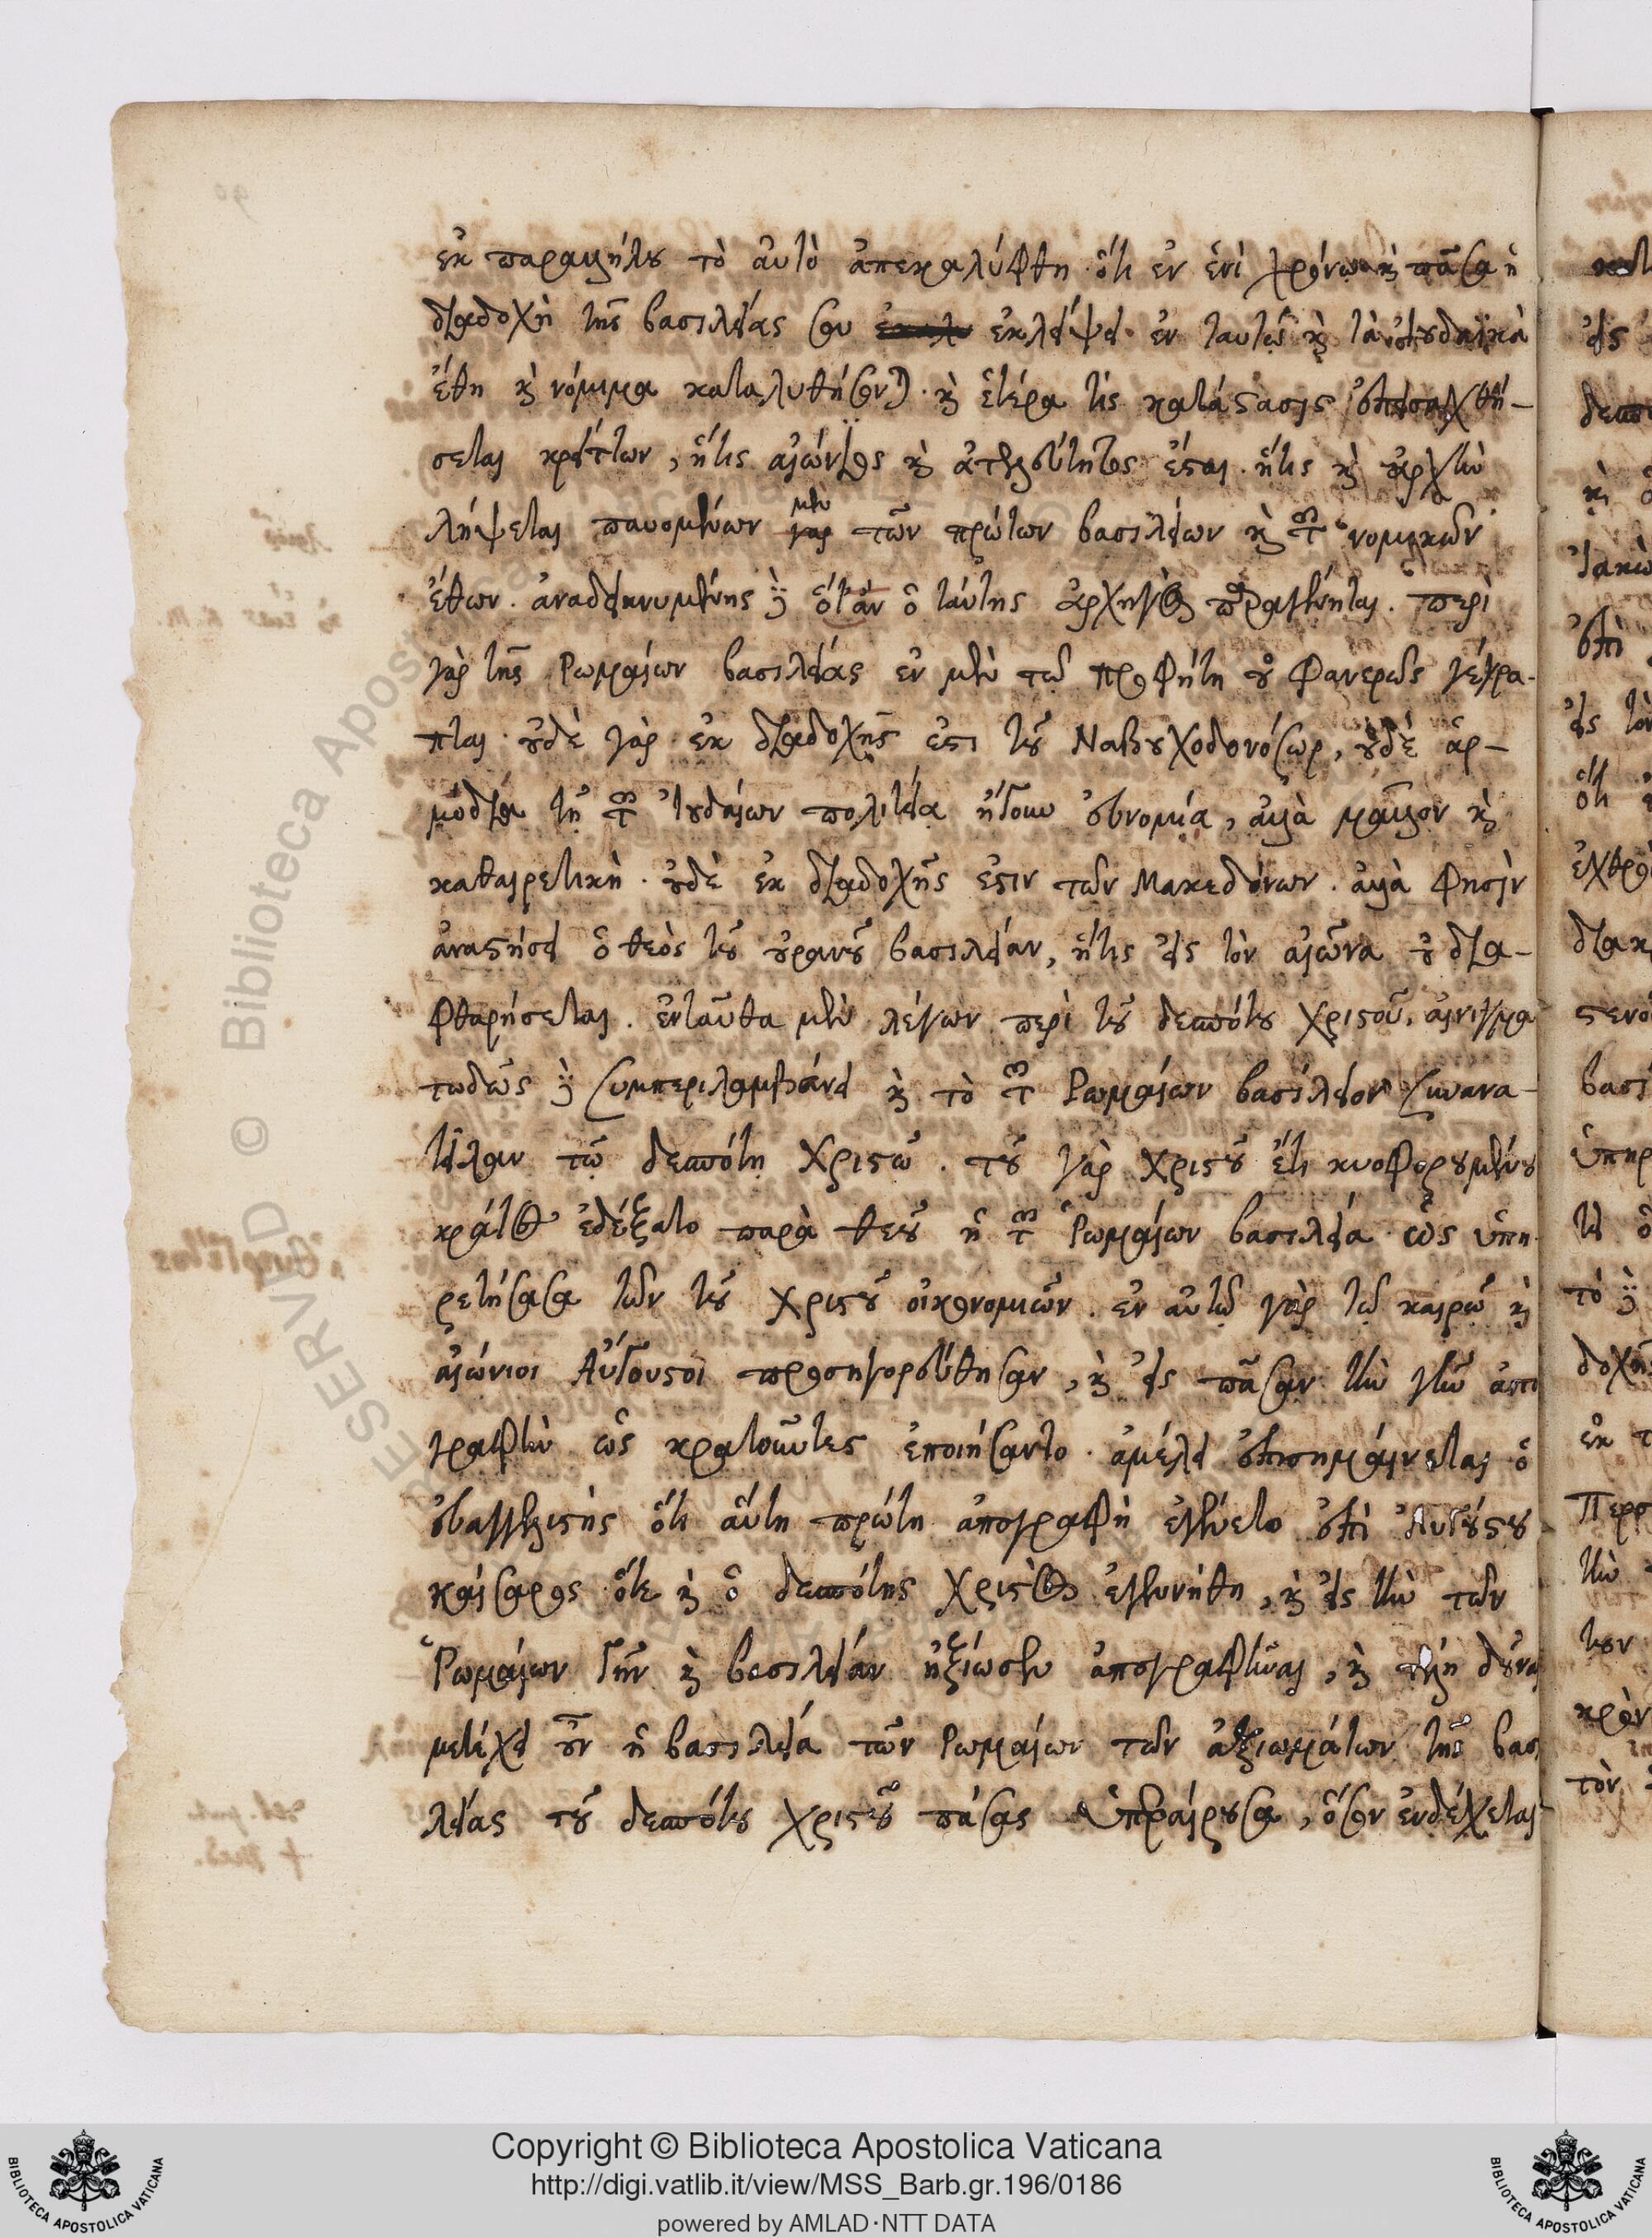 ἐκ παραλλήλου τὸ αὐτὸ ἀπεκαλύφθη· ὅτι ἐν ἑνὶ χρόνῳ καὶ πᾶσα ἡ
διαδοχὴ τῆς βασιλείας σου ἐκλείψει· ἐν ταυτῷ καὶ τὰ ἰουδαϊκὰ
ἔθη καὶ νόμιμα καταλυθήσονται· καὶ ἑτέρα τις κατάστασις ἐπεισαχθή-
σεται κρείττων, ἥτις αἰώνιος καὶ ἀτελεύτητος ἔσται. ἥτις καὶ ἀρχὴν
λήψεται παυομένων μὲν τῶν πρώτων βασιλείων καὶ τῶν νομικῶν
ἐθῶν. ἀναδεικνυμένης δὲ ὅταν ὁ ταύτης ἀρχηγὸς παραγένηται. περὶ
γὰρ τῆς Ῥωμαίων βασιλείας ἐν μὲν τῷ προφήτῃ οὐ φανερῶς γέγρα-
πται· οὐδὲ γὰρ ἐκ διαδοχῆς ἐστι τοῦ Ναβουχοδονόσωρ, οὐδὲ ἁρ-
μόδια τῇ τῶν Ἰουδαίων πολιτεία ἤγουν εὐνομία, ἀλλὰ μᾶλλον καὶ
καθαιρετικὴ· οὐδὲ ἐκ διαδοχῆς ἐστιν τῶν Μακεδόνων. ἀλλὰ φησὶν
ἀναστήσει ὁ θεὸς τοῦ οὐρανοῦ βασιλείαν, ἥτις εἰς τὸν αἰῶνα οὐ δια-
φθαρήσεται. ἐνταῦθα μὲν λέγων περὶ τοῦ δεσπότου Χριστοῦ, αἰνιγμα
τωδῶς δὲ συμπεριλαμβάνει καὶ τὸ τῶν Ῥωμαίων βασίλειον συνανα-
τεῖλαν τῷ δεσπότῃ Χριστῷ. τοῦ γὰρ Χριστοῦ ἔτι κυοφορουμένου
κράτος ἐδέξατο παρὰ θεοῦ ἡ τῶν Ῥωμαίων βασιλεία· ὡς ὑπη-
ρετήσασα τῶν τοῦ Χριστοῦ οἰκονομιῶν. ἐν αὐτῷ γὰρ τῷ καιρῷ καὶ
αἰώνιοι Αὔγουστοι προσηγορεύθησαν, καὶ εἰς πᾶσαν τὴν γῆν ἀπο
γραφὴν ὡς κρατοῦντες ἐποιήσαντο. ἀμέλει ἐπισημαίνεται ὁ
εὐαγγελιστὴς ὅτι αὕτη πρώτη ἀπογραφὴ ἐγένετο ἐπὶ Αὐγούστου
καίσαρος ὅτε καὶ ὁ δεσπότης Χριστὸς ἐγεννήθη, καὶ εἰς τὴν τῶν
Ῥωμαίων γῆν καὶ βασιλείαν ἠξίωσεν ἀπογραφῆναι, καὶ τέλη δοῦναι
μετέχει οὖν ἡ βασιλεία τῶν Ῥωμαίων τῶν ἀξιωμάτων τῆς βασι
λείας τοῦ δεσπότου Χριστοῦ πάσας ὑπεραίρουσα, ὅσον ἐνδέχεται
Copyright © Biblioteca Apostolica Vaticana
http://digi.vatlib.it/view/MSS_Barb.gr.196/0186
powered by AMLAD·NTT DATA